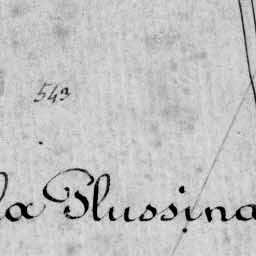 543
la Plussina